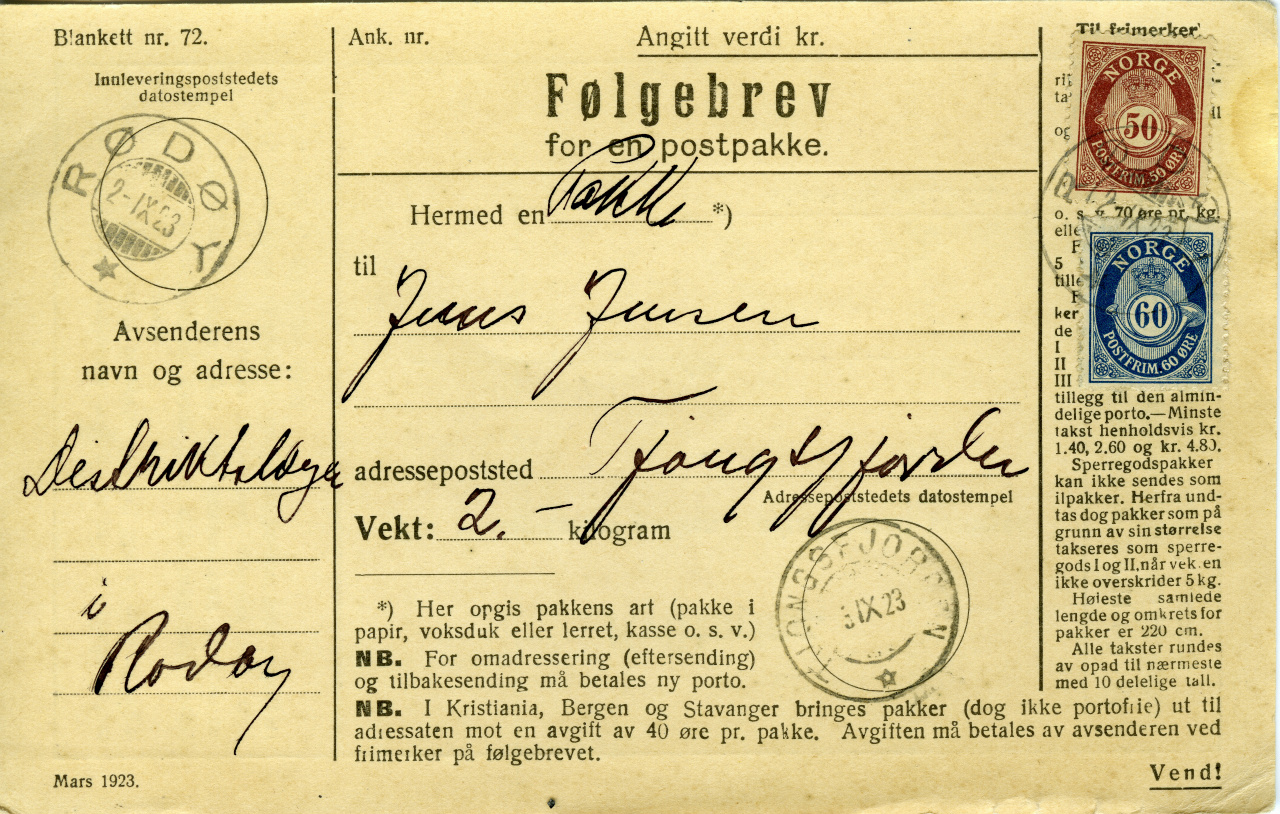 Blankett nr. 72.
Innleveringspoststedets
datostempel
RØDØY
2-IX23
Avsenderens
navn og adresse:
Distriktslægen
i
Rodøy
Mars 1923.
Ank. nr.
Angitt verdi kr.
Følgebrev
for en postpakke.
Hermed en Pakke *)
til
Jens Jensen
adressepoststed Tjongsfjorden
Adressepoststedets datostempel
Vekt: 2.- kilogram
TJONGSFJORDEN
IX23
*) Her opgis pakkens art (pakke i
papir, voksduk eller lerret, kasse o. s. v.)
NB. For omadressering (eftersending)
og tilbakesending må betales ny porto.
NB. I Kristiania, Bergen og Stavanger bringes pakker (dog ikke portofrie) ut til
adressaten mot en avgift av 40 øre pr. pakke. Avgiften må betales av avsenderen ved
frimerker på følgebrevet.
Vend!
Til frimerker
NORGE
50
POSTFRIM. 50 ØRE
og
o. s. v. 70 øre pr. kg.
NORGE
60
POSTFRIM. 60 ØRE
5
ker
de
I
II
III
tillegg til den almin-
delige porto.—Minste
takst henholdsvis kr.
1.40, 2.60 og kr. 4.80.
Sperregodspakker
kan ikke sendes som
ilpakker. Herfra und-
tas dog pakker som på
grunn av sin størrelse
takseres som sperre-
gods I og II, når vekten
ikke overskrider 5 kg.
Høieste samlede
lengde og omkrets for
pakker er 220 cm.
Alle takster rundes
av opad til nærmeste
med 10 delelige tall.